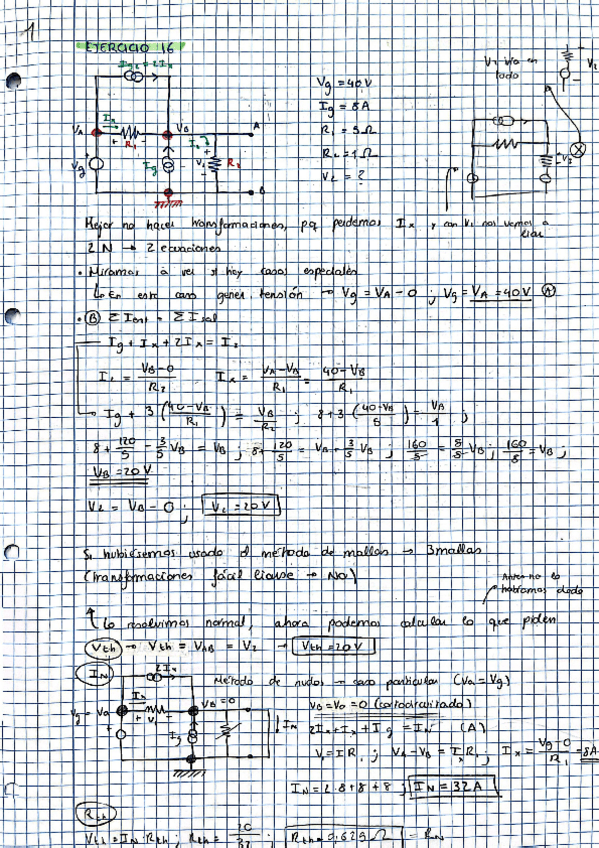 1
EJERCICIO 16
Ig2 = 2Ix
Vg = 40V
Ig = 8A
R1 = 5Ω
R2 = 1Ω
V2 = ?
VA Ix R1 VB A
Vg Ig V2 R2 B
todo
Mejor no hacer transformaciones, pq perdemos Ix y con V1 nos vemos a liar
2N → 2 ecuaciones
• Miramos a ver si hay casos especiales
↳ En este caso gener tensión → Vg = VA - 0 ; Vg = VA = 40V (A)
• (B) Σ Ient = Σ Isal
Ig + Ix + 2Ix = I2
I2 = VB-0 / R2 Ix = VA-VB / R1 = 40-VB / R1
Ig + 3(40-VB / R1) = VB / R2 ; 8+3(40-VB / 5) = VB / 1 ;
8 + 120/5 - 3/5 VB = VB ; 8+ 120/5 = VB + 3/5 VB ; 160/5 = 8/5 VB ; 160/8 = VB ;
VB = 20V
V2 = VB - 0 ; V2 = 20V
Si hubiésemos usado el método de mallas → 3 mallas
(transformaciones fácil liarse → No)
Antes no lo habíamos dado
Lo resolvimos normal, ahora podemos calcular lo que piden
Vth → Vth = VAB = V2 → Vth = 20V
IN 2Ix
Método de nudos → caso particular (Va = Vg)
Vg = Va Ix V1 VB = 0 Ig IN
VB = V0 = 0 (cortocircuitado)
2Ix + Ix + Ig = IN (A)
V1 = IR1 ; VA - VB = IxR1 ; Ix = Vg-0 / R1 = 8A
IN = 2·8+8+8 ; IN = 32A
Rth
Vth = IN · Rth ; Rth = 20/32 ; Rth = 0,625Ω = RN